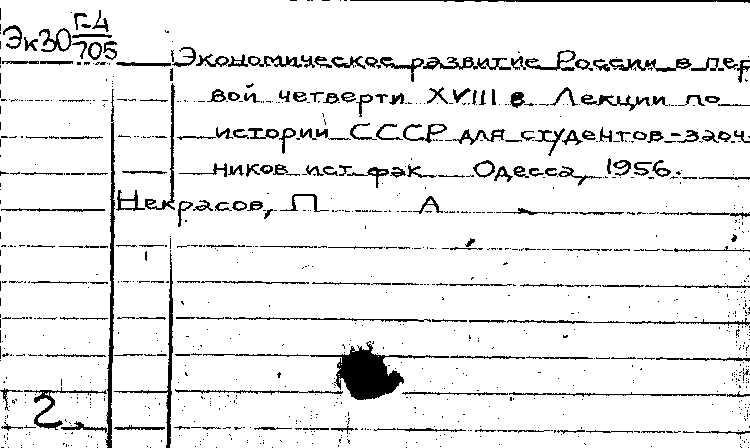 Эк30 Г-4
705
Экономическое развитие России в пер
вой четверти XVIII в Лекции по
истории СССР для студентов-заоч
ников ист. фак Одесса, 1956.
Некрасов, П А
2